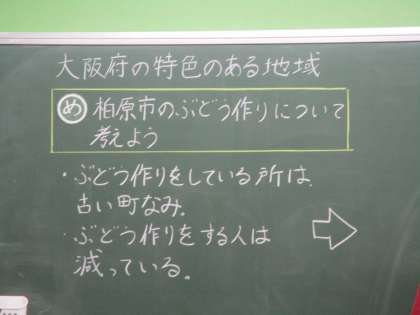 大阪府の特色のある地域
め 柏原市のぶどう作りについて
考えよう
・ぶどう作りをしている所は、
古い町なみ。
・ぶどう作りをする人は
減っている。